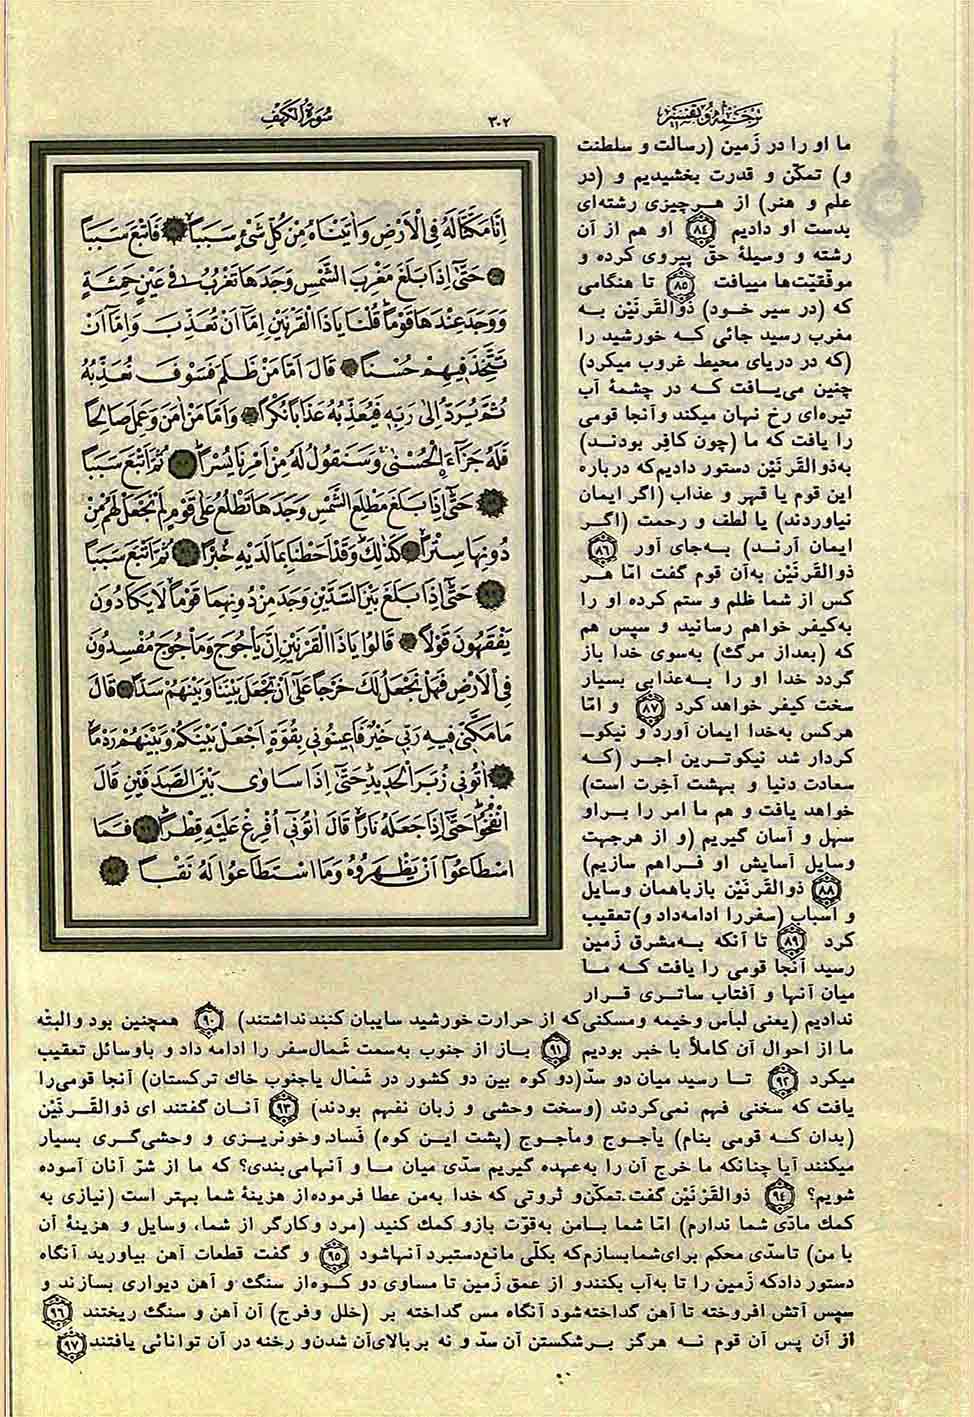 ترجمه و تفسیر
۳۰۲
سورة الكهف
اِنَّا مَكَّنَّا لَهُ فِي الْاَرْضِ وَاٰتَيْنَاهُ مِنْ كُلِّ شَيْءٍ سَبَبًا فَاَتْبَعَ سَبَبًا
حَتّٰى اِذَا بَلَغَ مَغْرِبَ الشَّمْسِ وَجَدَهَا تَغْرُبُ فِي عَيْنٍ حَمِئَةٍ
وَوَجَدَ عِنْدَهَا قَوْمًا قُلْنَا يَاذَا الْقَرْنَيْنِ اِمَّا اَنْ تُعَذِّبَ وَاِمَّا اَنْ
تَتَّخِذَ فِيهِمْ حُسْنًا قَالَ اَمَّا مَنْ ظَلَمَ فَسَوْفَ نُعَذِّبُهُ
ثُمَّ يُرَدُّ اِلٰى رَبِّهٖ فَيُعَذِّبُهُ عَذَابًا نُكْرًا وَاَمَّا مَنْ اٰمَنَ وَعَمِلَ صَالِحًا
فَلَهُ جَزَآءَ اِلْحُسْنٰى وَسَنَقُولُ لَهُ مِنْ اَمْرِنَا يُسْرًا ثُمَّ اَتْبَعَ سَبَبًا
حَتّٰى اِذَا بَلَغَ مَطْلِعَ الشَّمْسِ وَجَدَهَا تَطْلُعُ عَلٰى قَوْمٍ لَمْ نَجْعَلْ لَهُمْ مِنْ
دُونِهَا سِتْرًا كَذٰلِكَ وَقَدْ اَحَطْنَا بِمَا لَدَيْهِ خُبْرًا ثُمَّ اَتْبَعَ سَبَبًا
حَتّٰى اِذَا بَلَغَ بَيْنَ السَّدَّيْنِ وَجَدَ مِنْ دُونِهِمَا قَوْمًا لَا يَكَادُونَ
يَفْقَهُونَ قَوْلًا قَالُوا يَاذَا الْقَرْنَيْنِ اِنَّ يَأْجُوجَ وَمَأْجُوجَ مُفْسِدُونَ
فِي الْاَرْضِ فَهَلْ نَجْعَلُ لَكَ خَرْجًا عَلٰى اَنْ تَجْعَلَ بَيْنَنَا وَبَيْنَهُمْ سَدًّا قَالَ
مَا مَكَّنّٖي فِيهِ رَبِّي خَيْرٌ فَاَعِينُونِي بِقُوَّةٍ اَجْعَلْ بَيْنَكُمْ وَبَيْنَهُمْ رَدْمًا
اٰتُونِي زُبَرَ الْحَدِيدِ حَتّٰى اِذَا سَاوٰى بَيْنَ الصَّدَفَيْنِ قَالَ
انْفُخُوا حَتّٰى اِذَا جَعَلَهُ نَارًا قَالَ اٰتُونِي اُفْرِغْ عَلَيْهِ قِطْرًا فَمَا
اسْطَاعُوا اَنْ يَظْهَرُوهُ وَمَا اسْتَطَاعُوا لَهُ نَقْبًا
ما او را در زَمین (رسالت و سلطنت
و) تمکّن و قدرت بخشیدیم و (در
علم و هنر) از هرچیزی رشته‌ای
بدست او دادیم ۸۴ او هم از آن
رشته و وسیلهٔ حقّ پیروی کرده و
موفّقیّت‌ها مییافت ۸۵ تا هنگامی
که (در سیر خود) ذوالقَرنَیْن به
مغرب رسید جائی که خورشید را
(که در دریای محیط غروب میکرد)
چنین می‌یافت که در چشمهٔ آب
تیره‌ای رخ نهان میکند وآنجا قومی
را یافت که ما (چون کافِر بودند)
به‌ذوالقَرنَیْن دستور دادیم‌که درباره
این قوم یا قهر و عذاب (اگر ایمان
نیاوردند) یا لطف و رحمت (اگر
ایمان آرند) به‌جای آور ۸۶
ذوالقَرنَیْن به‌آن قوم گفت امّا هر
کس از شما ظلم و ستم کرده او را
به‌کیفر خواهم رسانید و سپس هم
که (بعداز مرگ) به‌سوی خدا باز
گردد خدا او را به‌عذابی بسیار
سخت کیفر خواهد کرد ۸۷ و امّا
هرکس به‌خدا ایمان آورد و نیکو-
کردار شد نیکوترین اجر (که
سعادت دنیا و بهشت آخِرت است)
خواهد یافت و هم ما امر را براو
سهل و آسان گیریم (و از هرجهت
وسایل آسایش او فراهم سازیم)
۸۸ ذوالقَرنَیْن بازباهمان وسایل
و اسباب (سفررا ادامه‌داد و)تعقیب
کرد ۸۹ تا آنکه به‌مشرق زَمین
رسید آنجا قومی را یافت که ما
میان آنها و آفتاب ساتری قرار
ندادیم (یعنی لباس وخیمه ومسکنی‌که از حرارت خورشید سایبان کنندنداشتند) ۹۰ همچنین بود والبتّه
ما از احوال آن کاملاً با خبر بودیم ۹۱ باز از جنوب به‌سمت شَمال‌سفر را ادامه داد و باوسائل تعقیب
میکرد ۹۲ تا رسید میان دو سدّ(دو کوه بین دو کشور در شَمال یاجنوب خاك ترکستان) آنجا قومی‌را
یافت که سخنی فهم نمی‌کردند (وسخت وحشی و زبان نفهم بودند) ۹۳ آنان گفتند ای ذوالقَرنَیْن
(بدان که قومی بنام) یأجوج ومأجوج (پشت این کوه) فَساد وخونریزی و وحشی‌گری بسیار
میکنند آیا چنانکه ما خرج آن را به‌عهده گیریم سدّی میان ما و آنهامی‌بندی؟ که ما از شرّ آنان آسوده
شویم؟ ۹۴ ذوالقَرنَیْن گفت تمکّن‌و ثروتی که خدا به‌من عطا فرموده‌از هزینهٔ شما بهتر است (نیازی به
کمك مادّی شما ندارم) امّا شما بامن به‌قوّت بازو کمك کنید (مرد وکارگر از شما، وسایل و هزینهٔ آن
با من) تاسدّی محکم برای‌شمابسازم‌که بکلّی مانع‌دستبرد آنهاشود ۹۵ و گفت قطعات آهن بیاورید آنگاه
دستور دادکه زَمین را تا به‌آب بکنندو از عمق زَمین تا مساوی دو کوه‌از سنگ و آهن دیواری بسازند و
سپس آتش افروخته تا آهن گداخته‌شود آنگاه مس گداخته بر (خلل وفرج) آن آهن و سنگ ریختند ۹۶
از آن پس آن قوم نه هرگز برشکستن آن سدّ و نه بربالای‌آن شدن‌و رخنه در آن توانائی یافتند ۹۷